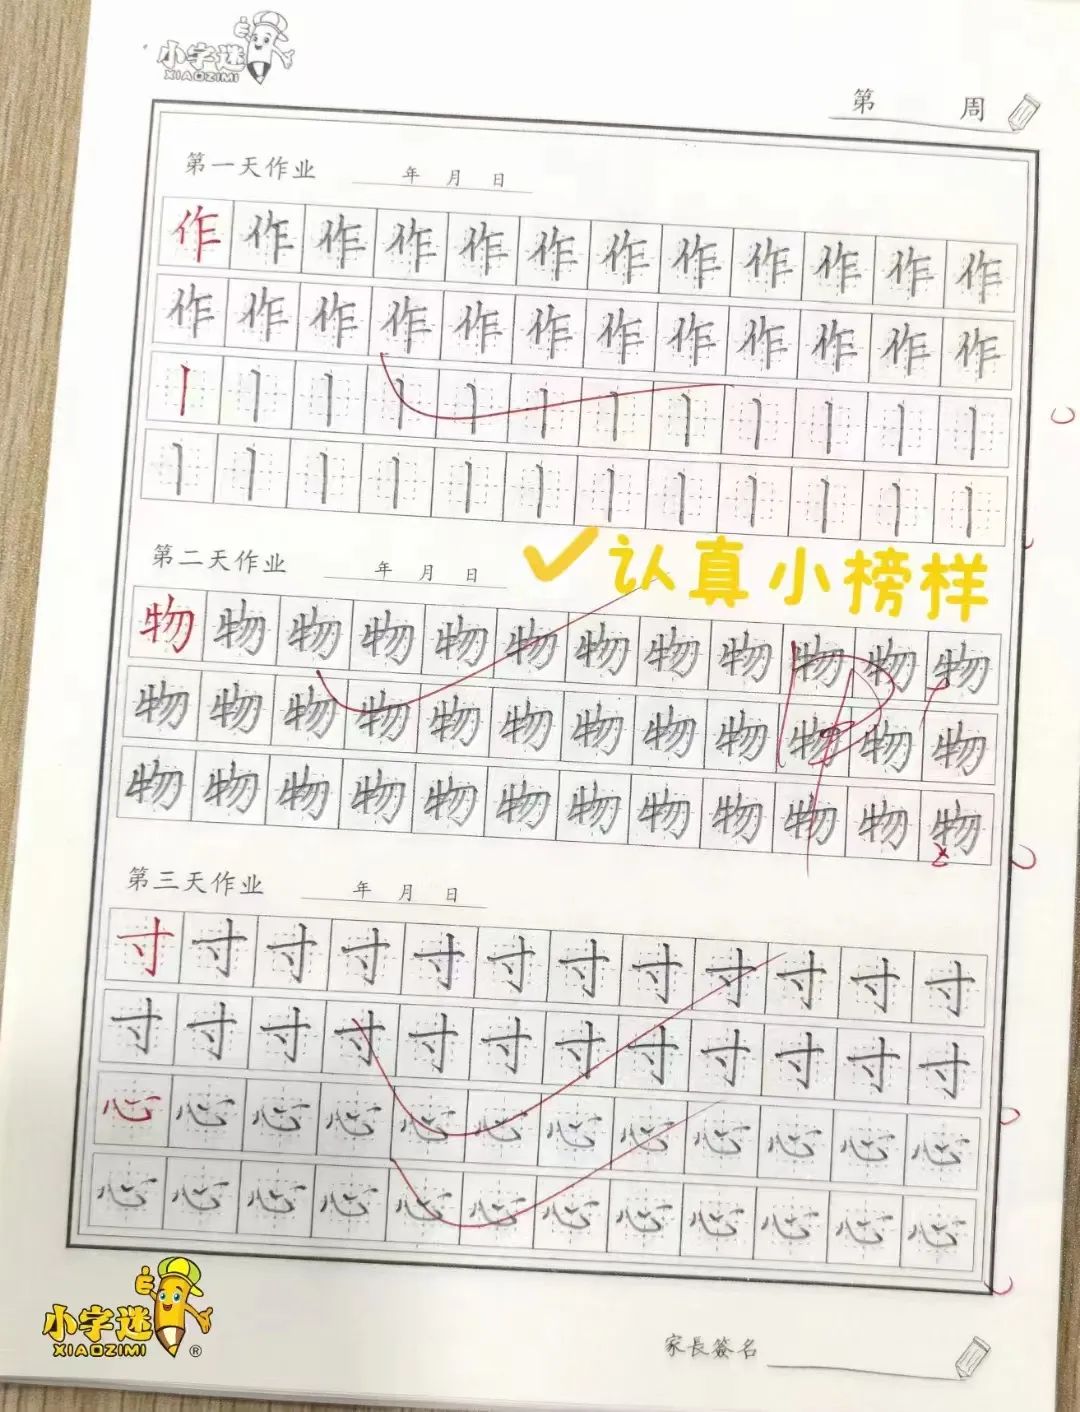 小字迷
XIAOZIMI
第 周
第一天作业 年 月 日
作作作作作作作作作作作作
作作作作作作作作作作作作
丨丨丨丨丨丨丨丨丨丨丨丨
丨丨丨丨丨丨丨丨丨丨丨丨
第二天作业 年 月 日
认真小榜样
物物物物物物物物物物物物
物物物物物物物物物物物物
物物物物物物物物物物物物
第三天作业 年 月 日
寸寸寸寸寸寸寸寸寸寸寸寸
寸寸寸寸寸寸寸寸寸寸寸寸
心心心心心心心心心心心心
心心心心心心心心心心心心
小字迷
XIAOZIMI®
家長簽名